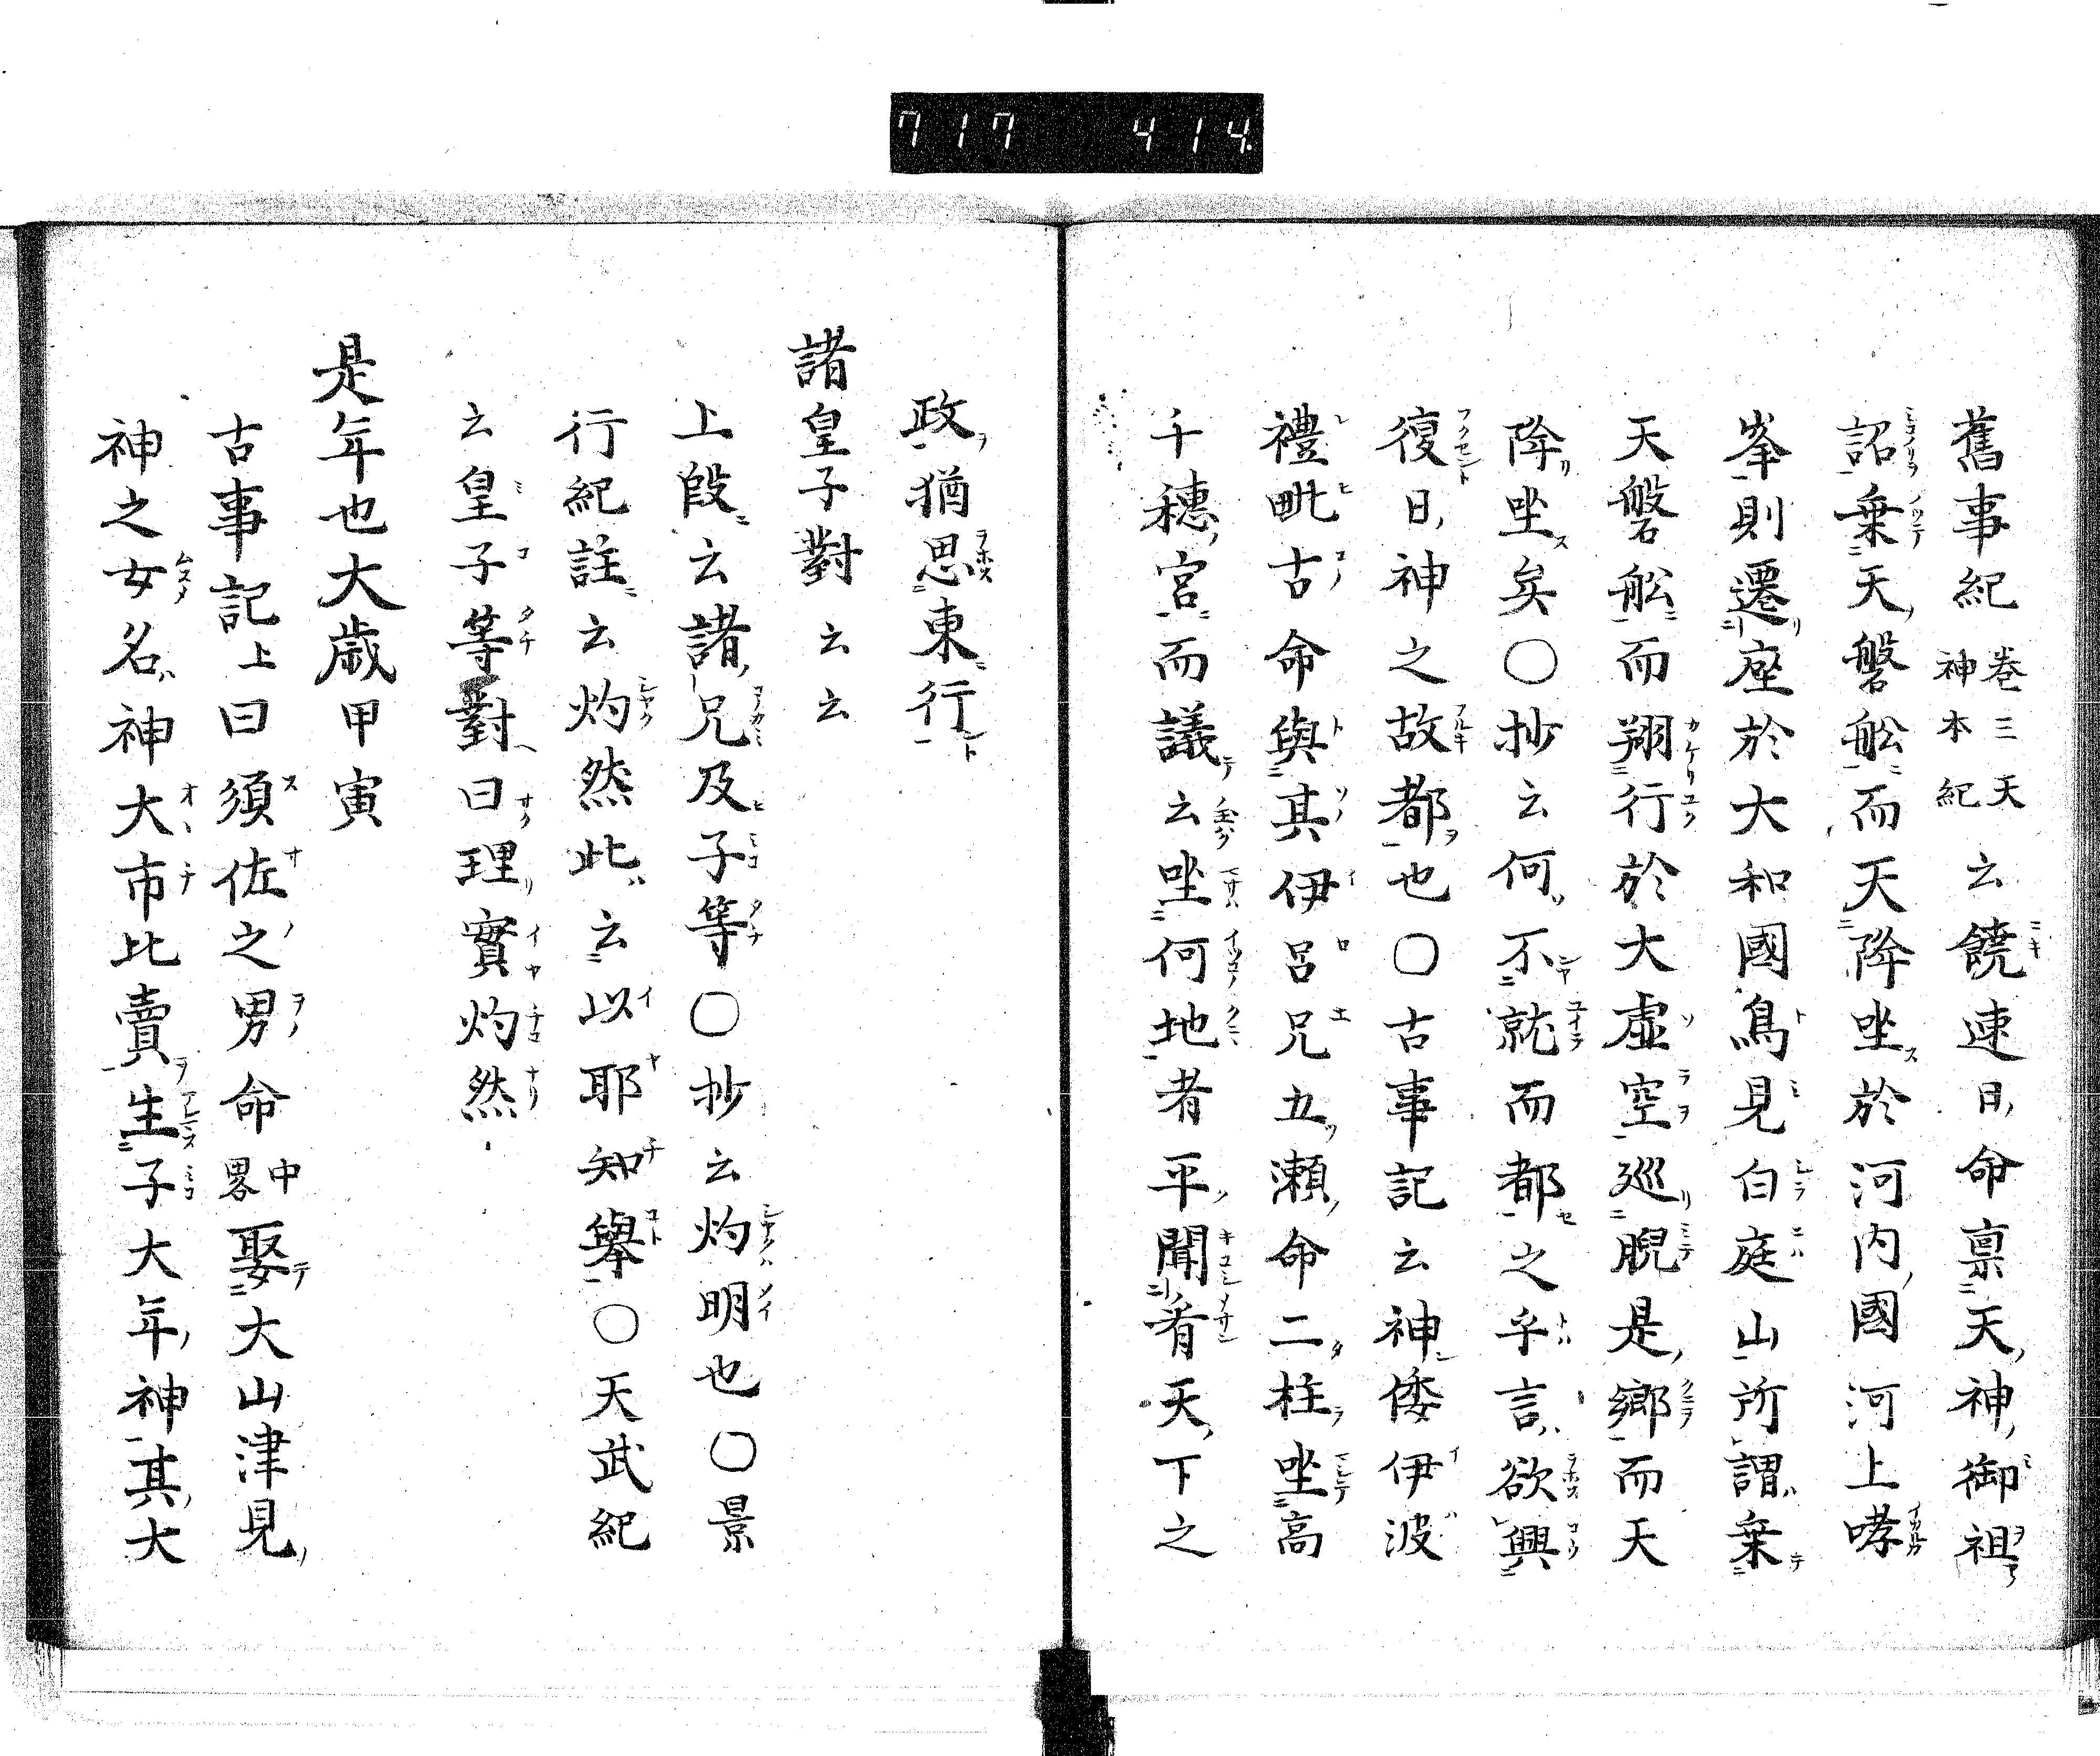 717 414
舊事紀巻三天神本紀云饒速日命禀天神御祖
詔乗天磐舩而天降坐於河内國河上哮
峯則遷座於大和國鳥見白庭山所謂乗
天磐舩而翔行於大虚空巡睨是郷而天
降坐矣〇抄云何不就而都之乎言欲興
復日神之故都也〇古事記云神倭伊波
禮毗古命與其伊呂兄五瀬命二柱坐高
千穂宮而議云坐何地者平聞看天下之
政猶思東行
諸皇子對云云
上段云諸兄及子等〇抄云灼明也〇景
行紀註云灼然此云以耶知舉〇天武紀
云皇子等對曰理實灼然
是年也大歳甲寅
古事記上曰須佐之男命中畧娶大山津見
神之女名神大市比賣生子大年神其大